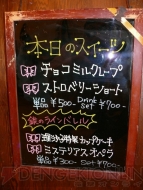 本日のスイーツ
チョコミルクレープ
ストロベリーショート
単品 ¥500- Drink Set ¥700-
銀のラインバレル
チップケーキ
ミステリアスオペラ
単品 ¥300- Set ¥700-